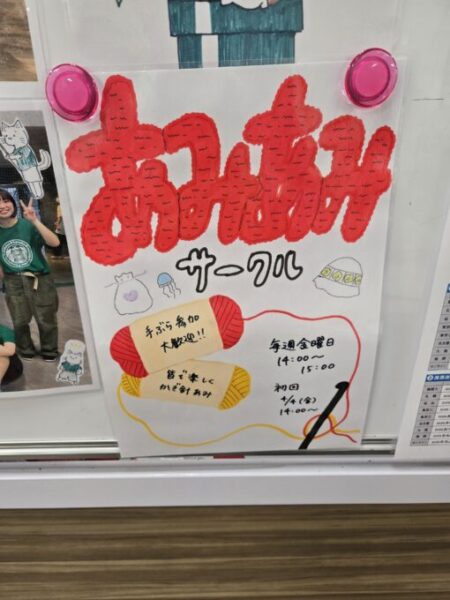 あみあみ
サークル
手ぶら参加
大歓迎!!
皆で楽しく
かぎ針あみ
毎週金曜日
14:00～
15:00
初回
4/4(金)
14:00～